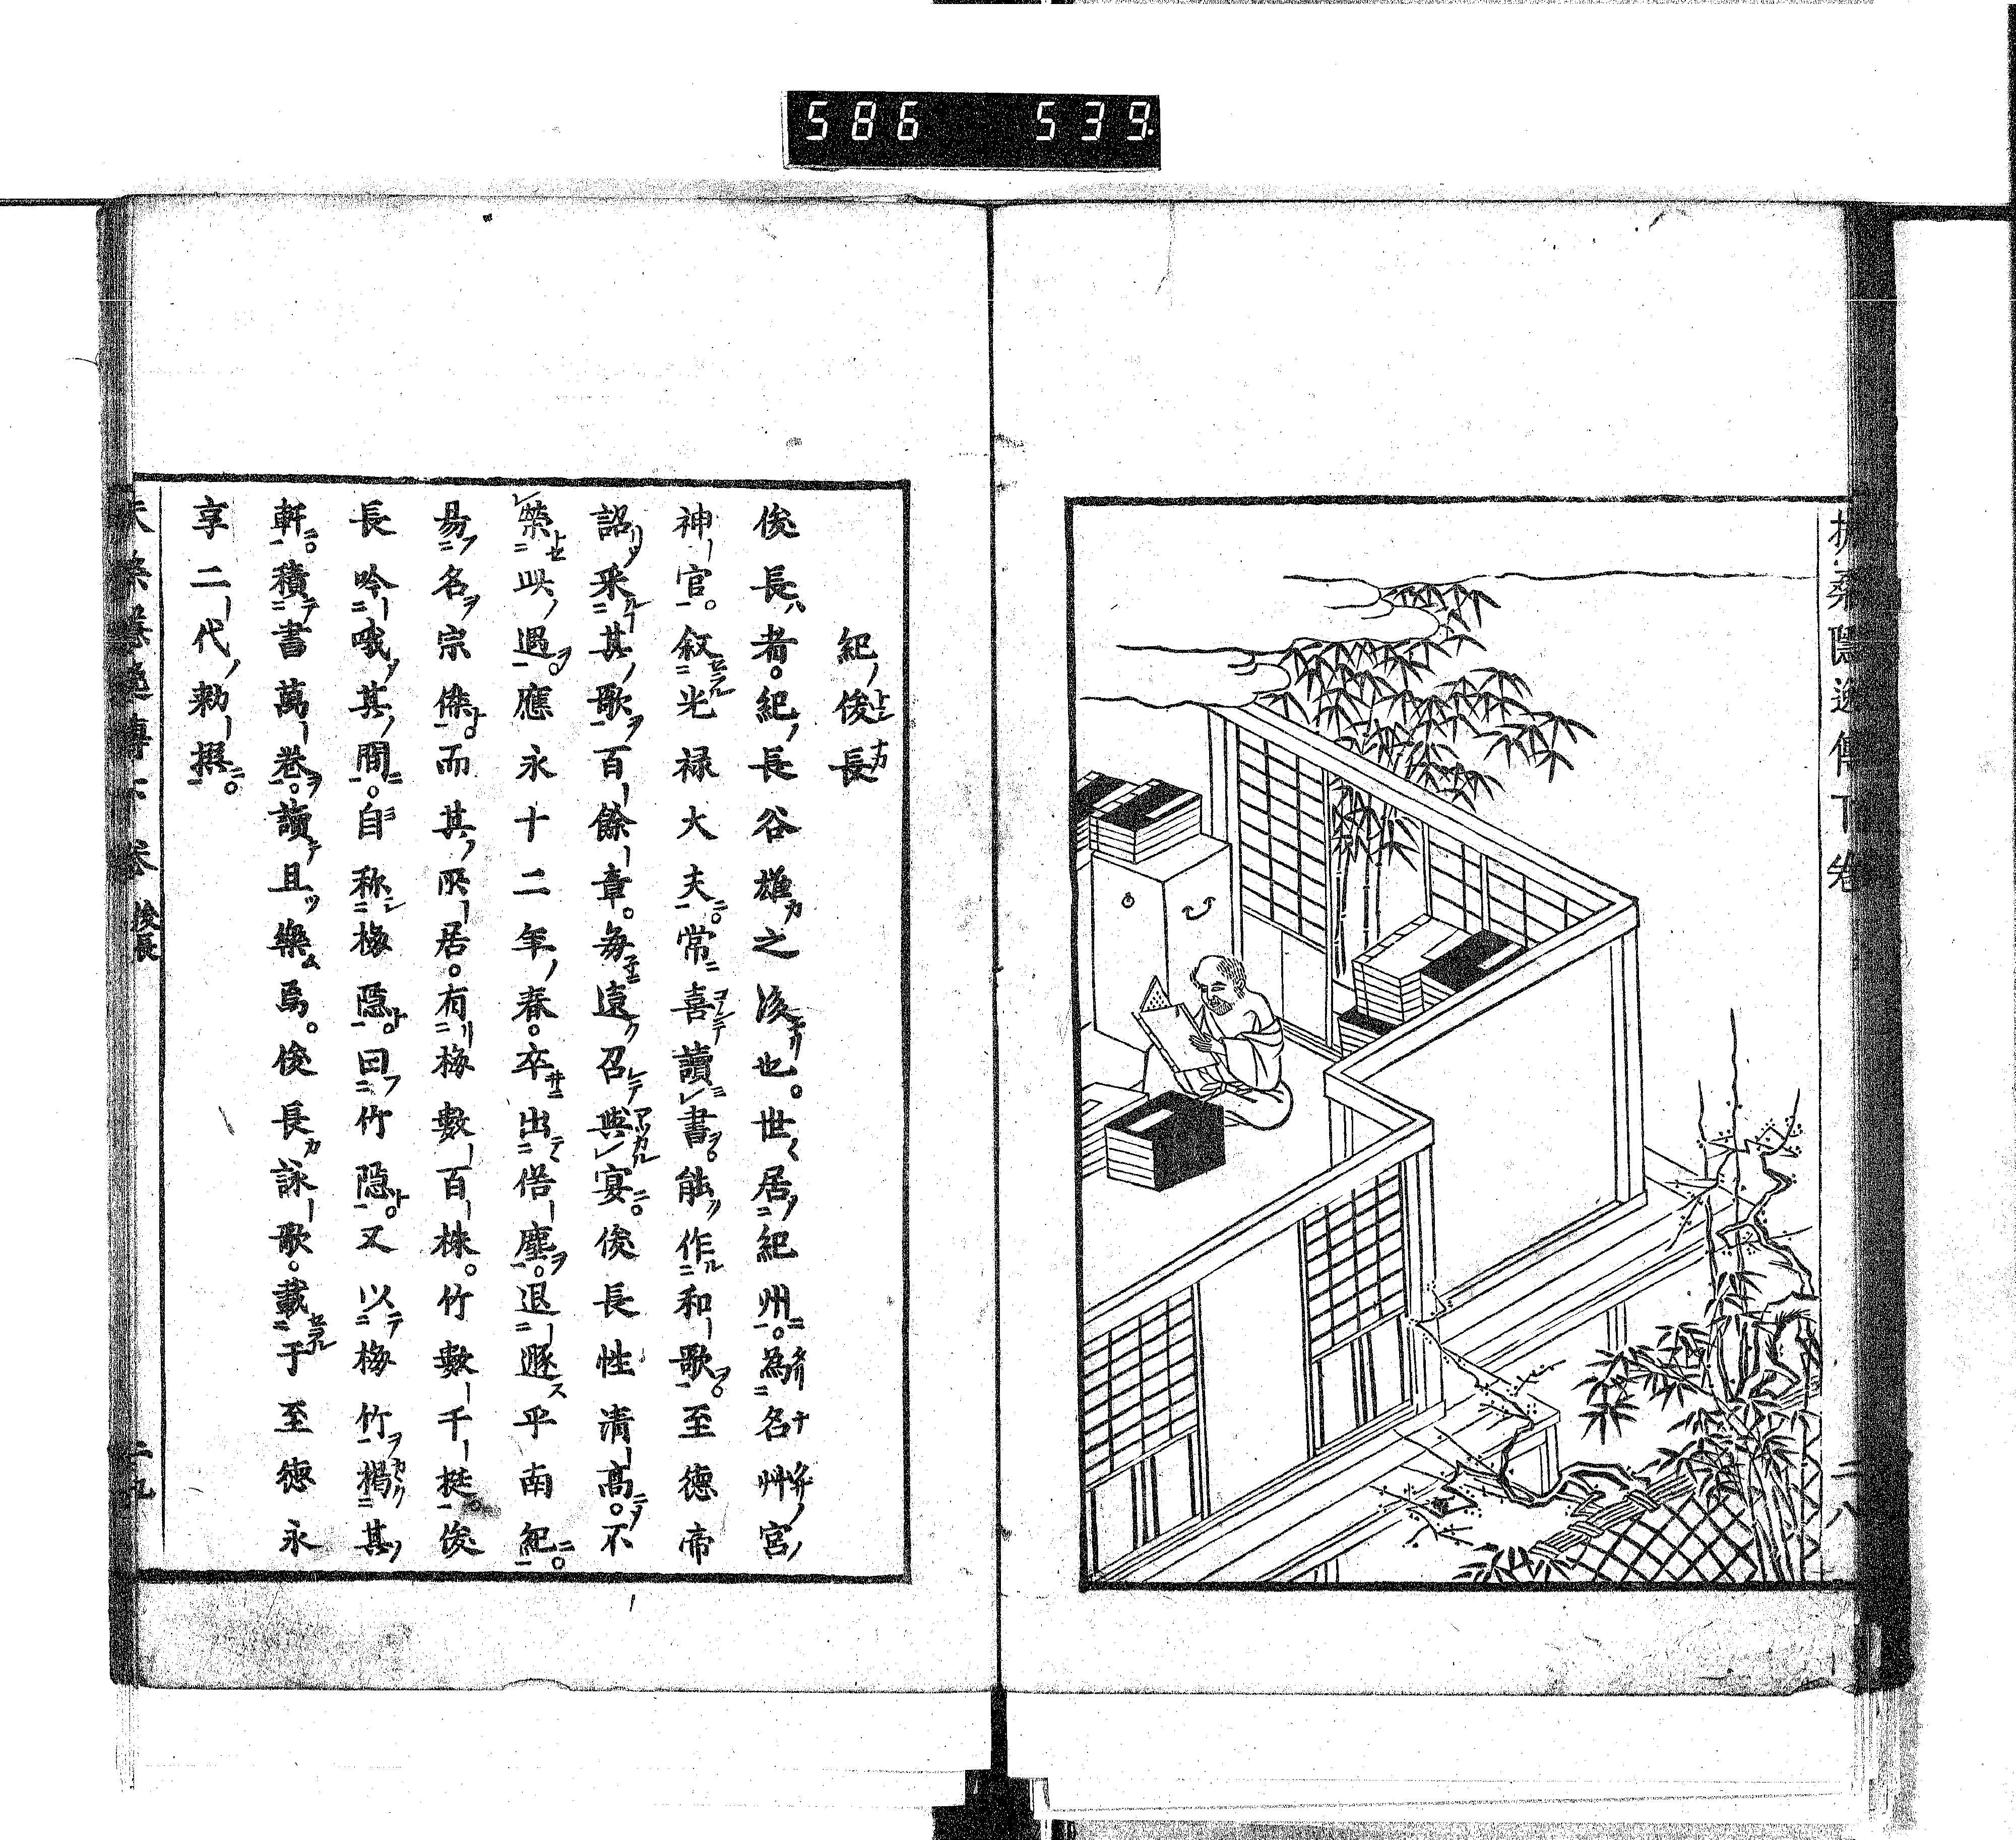 586 539.
扶桑隱逸傳下卷
二八
紀俊長
俊長者。紀長谷雄之後也。世居紀州。為名艸宮
神官。叙光禄大夫。常喜讀書。能作和歌。至德帝
詔采其歌百餘章。每遠召與宴。俊長性清高。不
榮此遇。應永十二年春。卒出俗塵。退遯乎南紀。
易名宗傑。而其所居。有梅數百株。竹數千挺。俊
長吟哦其間。自称梅隱。曰竹隱。又以梅竹揭其
軒。積書萬卷。讀且樂焉。俊長詠歌。載于至德永
享二代勅撰。
扶桑隱逸傳下卷
俊長
二九